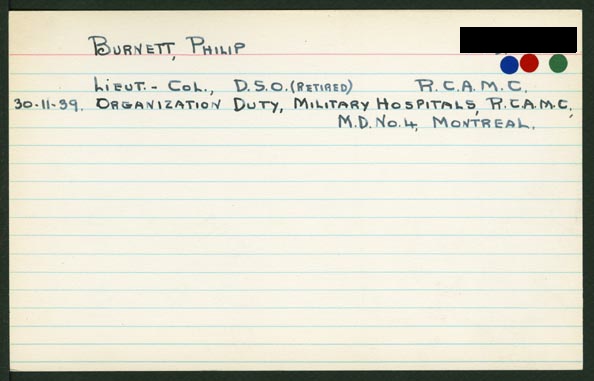 BURNETT, PHILIP
LIEUT.- COL., D.S.O. (RETIRED) R.C.A.M.C.
30-11-39. ORGANIZATION DUTY, MILITARY HOSPITALS, R.C.A.M.C,
M.D. No. 4, MONTREAL.